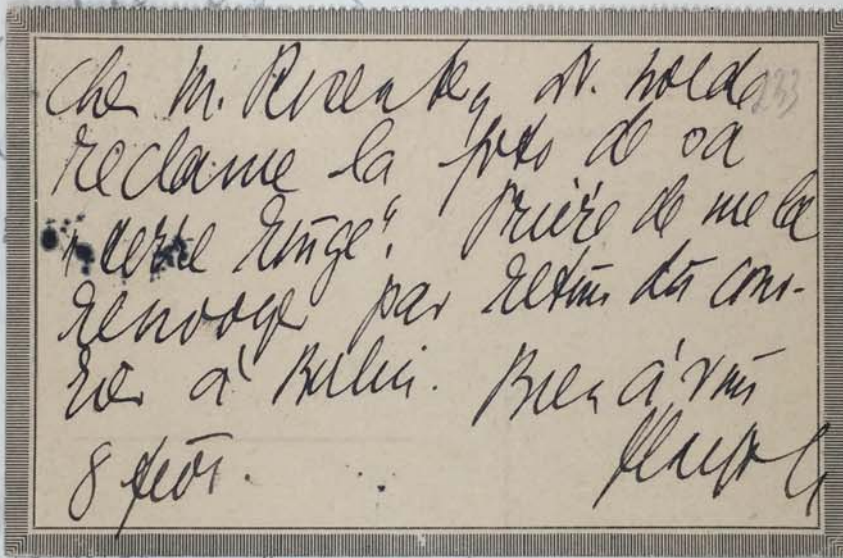 Cher M. Rosenberg, M. Nolde
reclame la foto de sa
„dette rouge". Prière de me la
renvoyer par retour du cour-
rier à Berlin. Bien à vous
8 févr.
233